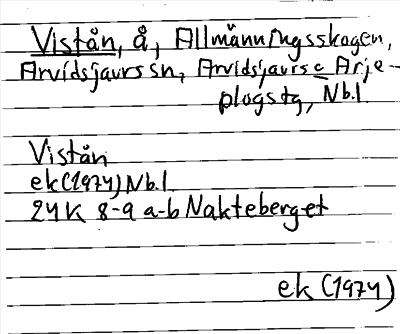 Vistån, å, Allmänningsskogen,
Arvidsjaurs sn, Arvidsjaurs o Arje-
plogs tg, Nb.l.
Vistån
ek (1974) Nb.l.
24K 8-9 a-b Nakteberget
ek (1974)